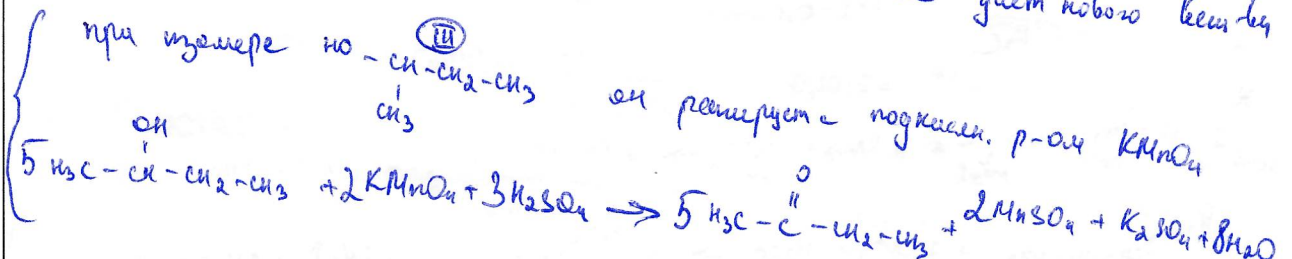 даёт нового вещ-ва
при изомере HO-CH-CH2-CH3 (III) он реагирует с подкислен. р-ом KMnO4
CH3
OH O
5 H3C-CH-CH2-CH3 + 2KMnO4 + 3H2SO4 → 5 H3C-C-CH2-CH3 + 2MnSO4 + K2SO4 + 8H2O